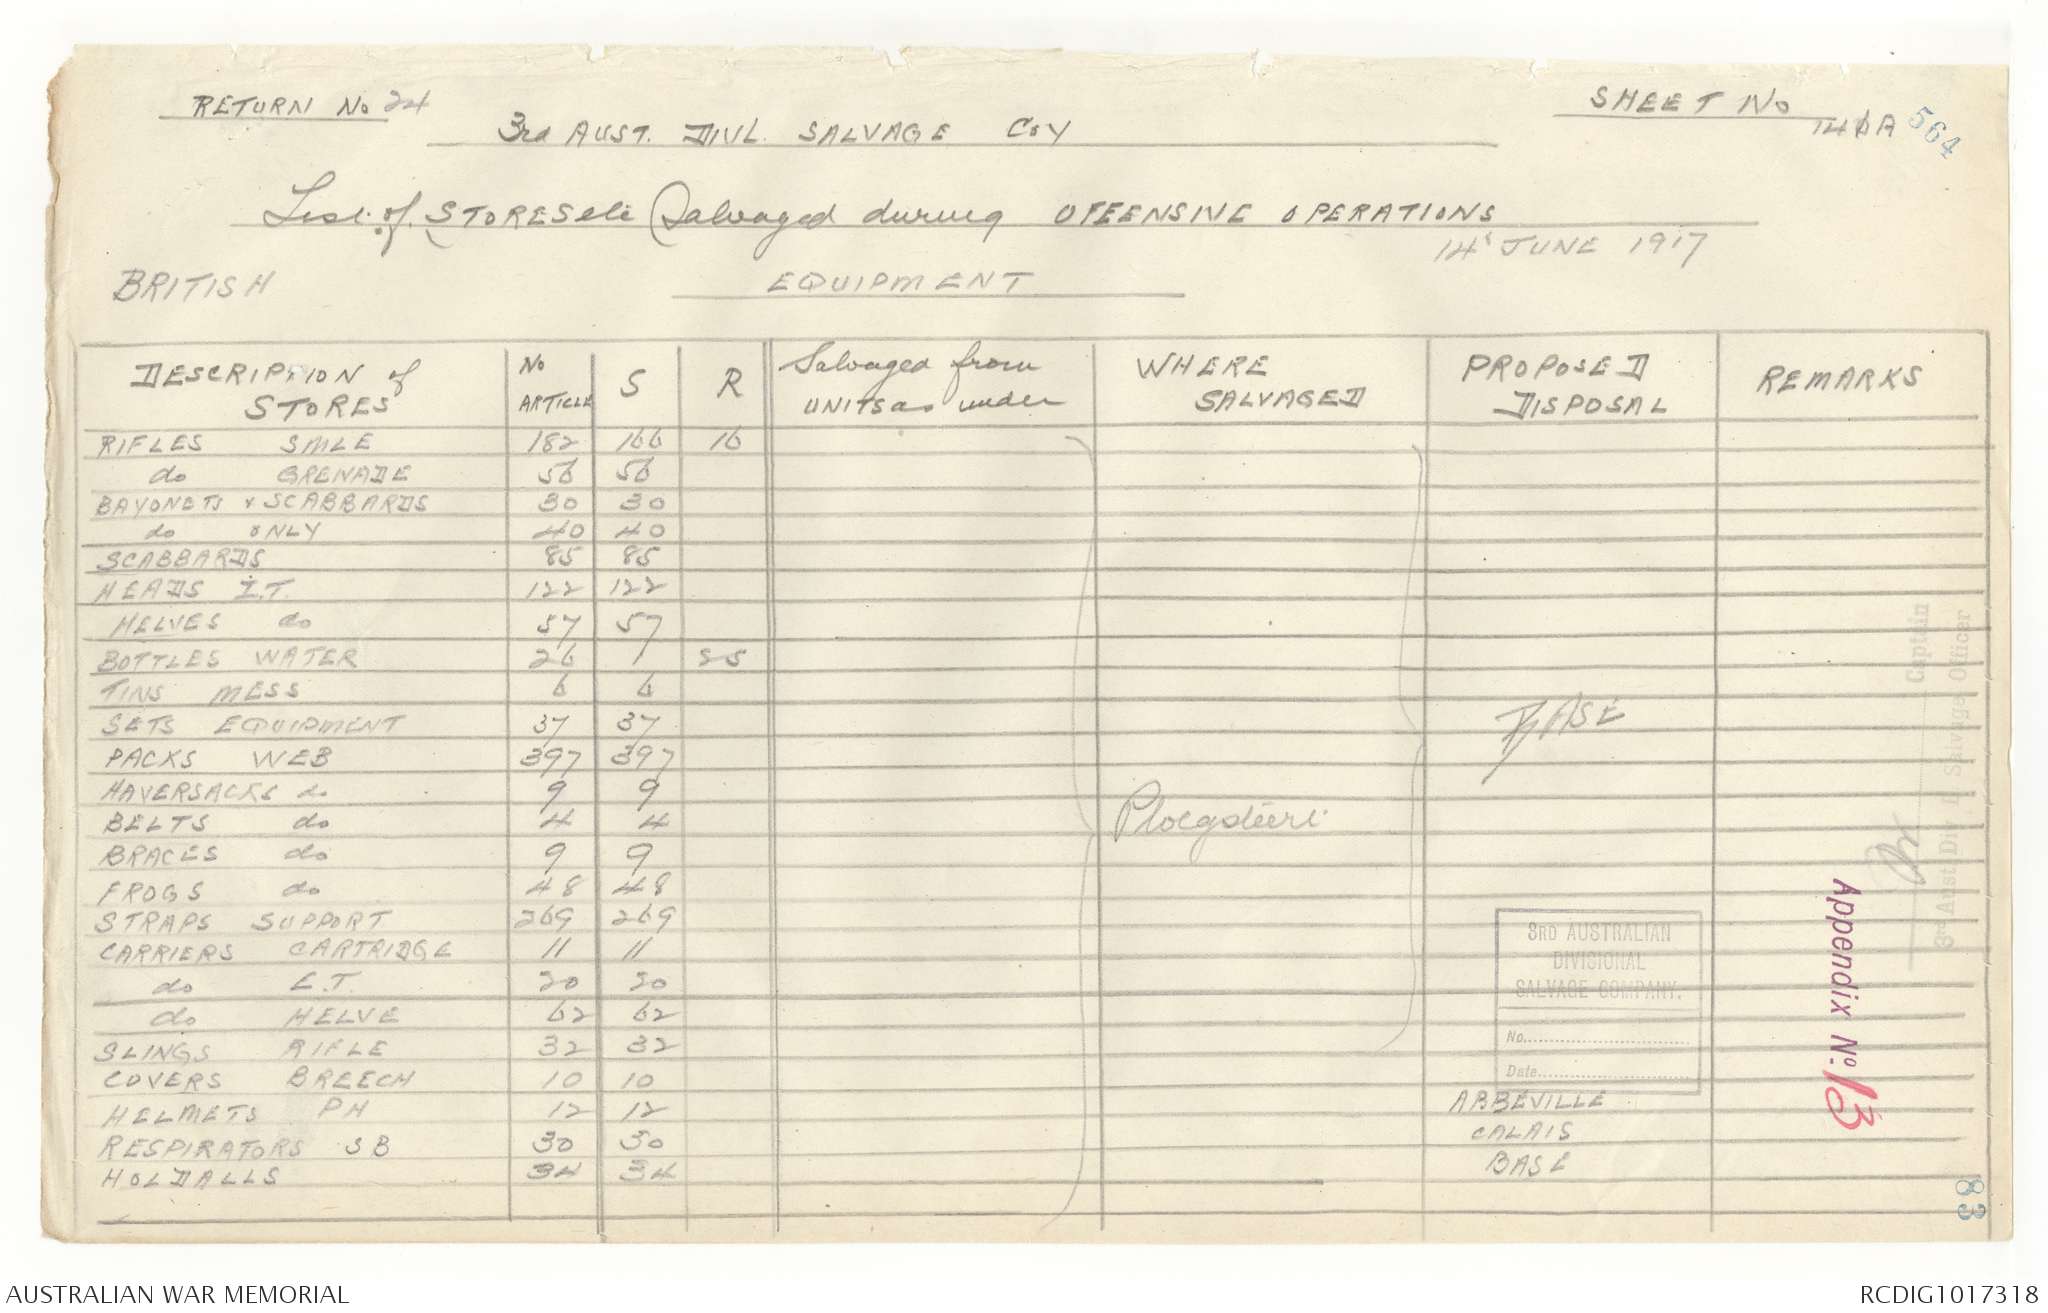 RETURN No 24
SHEET No
146A
564
3rd AUST. DIVL. SALVAGE COY
List of STORES etc Salvaged during OFFENSIVE OPERATIONS
14th JUNE 1917
BRITISH EQUIPMENT
DESCRIPTION of STORES No ARTICLE S R Salvaged from UNITS as under WHERE SALVAGED PROPOSED DISPOSAL REMARKS
RIFLES SMLE 182 166 16
do GRENADE 56 56
BAYONETS & SCABBARDS 30 30
do ONLY 40 40
SCABBARDS 85 85
HEADS E.T. 122 122
HELVES do 57 57
BOTTLES WATER 26 1 25
TINS MESS 6 6
SETS EQUIPMENT 37 37
BASE
PACKS WEB 397 397
HAVERSACKS do 9 9
BELTS do 4 4
Ploegsteert
BRACES do 9 9
FROGS do 48 48
STRAPS SUPPORT 269 269
CARRIERS CARTRIDGE 11 11
do E.T. 20 20
do HELVE 62 62
SLINGS RIFLE 32 32
COVERS BREECH 10 10
HELMETS PH 12 12 ABBEVILLE
RESPIRATORS SB 30 30 CALAIS
HOLDALLS 34 34 BASE
3RD AUSTRALIAN
DIVISIONAL
SALVAGE COMPANY.
No.
Date
Captain
3rd Aust. Div. Salvage Officer
Appendix No. 13
83
AUSTRALIAN WAR MEMORIAL
RCDIG1017318